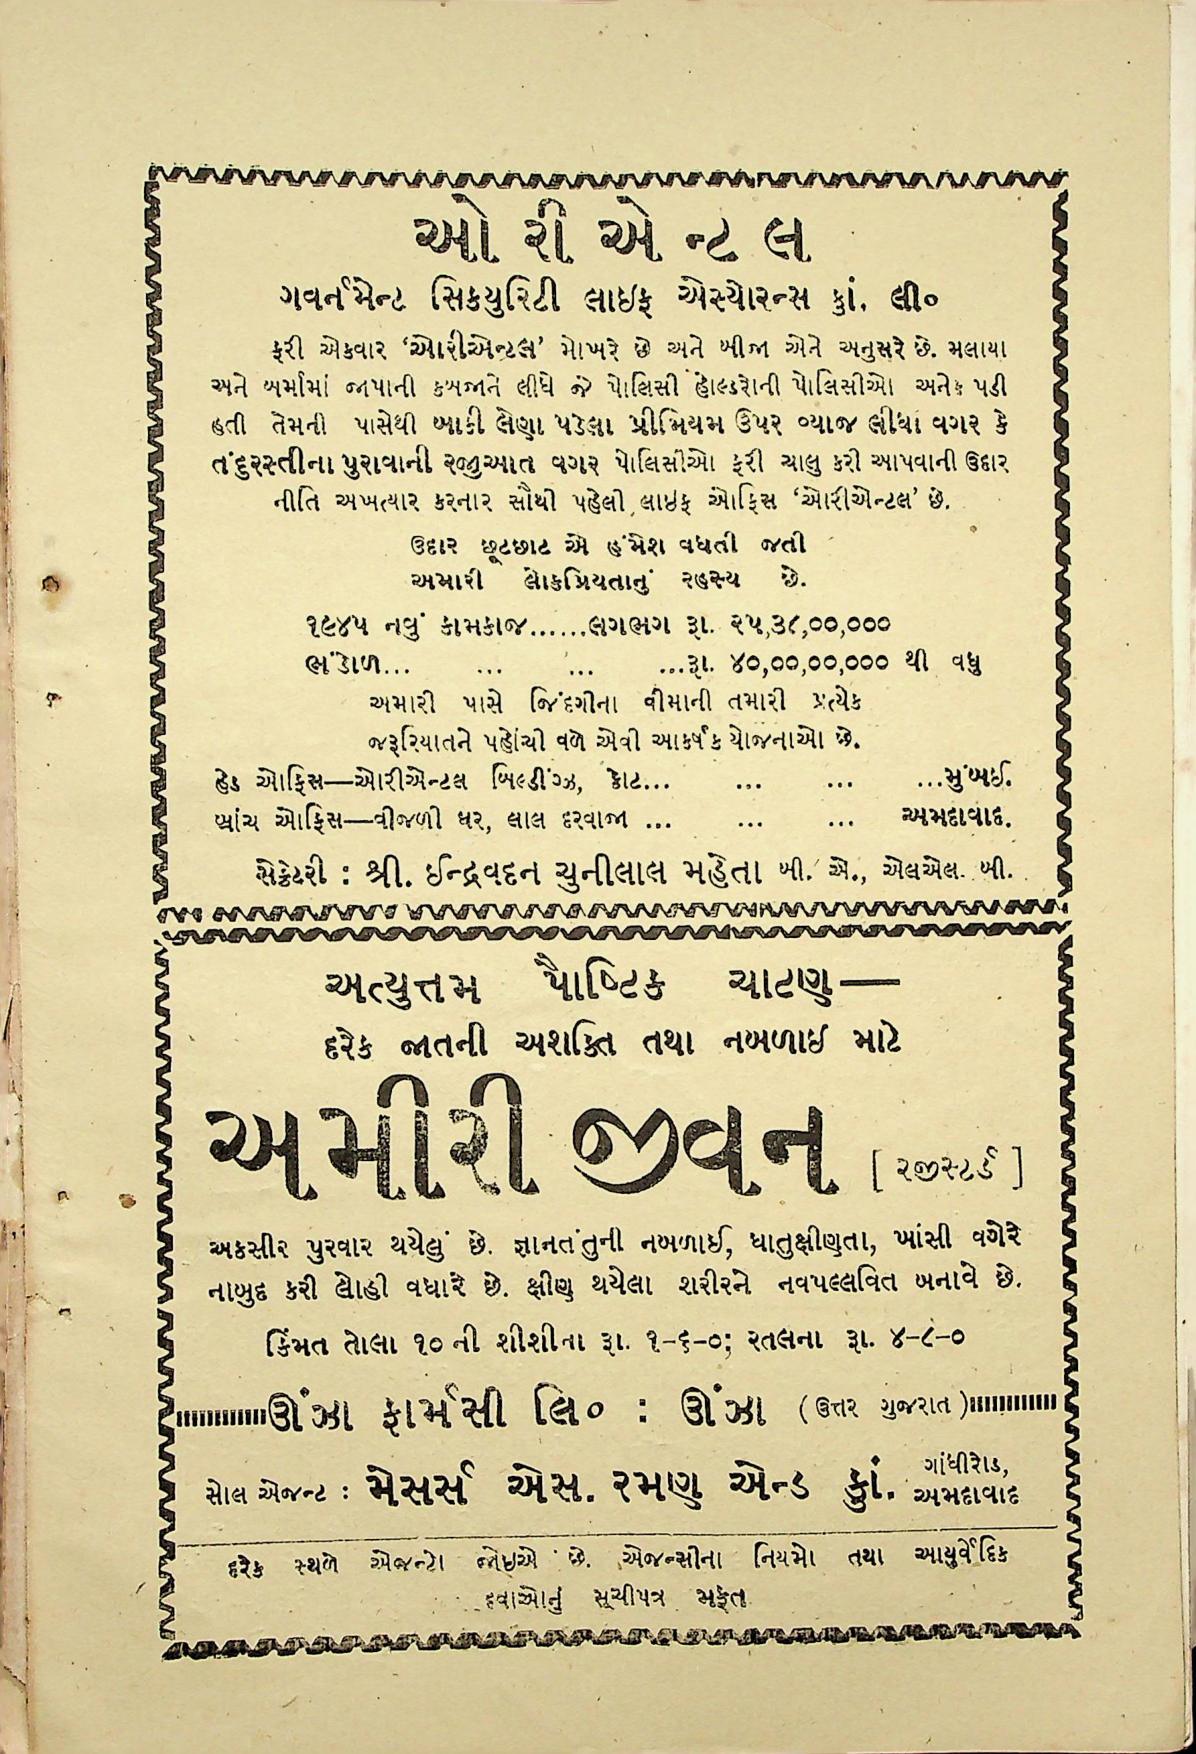 ઓરીએન્ટલ
ગવર્નમેન્ટ સિક્યુરિટી લાઇફ એસ્યોરન્સ કું. લી૦
ફરી એકવાર ‘ઓરીએન્ટલ’ મોખરે છે અને બીજા એને અનુસરે છે. મલાયા
અને બર્મામાં જાપાની કબજાને લીધે જે પોલિસી હોલ્ડરોની પોલિસીઓ અનેક પડી
હતી તેમની પાસેથી બાકી લેણા પડેલા પ્રીમિયમ ઉપર વ્યાજ લીધા વગર કે
તંદુરસ્તીના પુરાવાની રજીુઆત વગર પોલિસીઓ ફરી ચાલુ કરી આપવાની ઉદાર
નીતિ અખત્યાર કરનાર સૌથી પહેલી લાઇફ ઓફિસ ‘ઓરીએન્ટલ’ છે.
ઉદાર છૂટછાટ એ હંમેશ વધતી જતી
અમારી લોકપ્રિયતાનું રહસ્ય છે.
૧૯૪૫ નવું કામકાજ......લગભગ રૂા. ૨૫,૩૮,૦૦,૦૦૦
ભંડોળ... ... ... ...રૂા. ૪૦,૦૦,૦૦,૦૦૦ થી વધુ
અમારી પાસે જિંદગીના વીમાની તમારી પ્રત્યેક
જરૂરિયાતને પહોંચી વળે એવી આકર્ષક યોજનાઓ છે.
હેડ ઓફિસ—ઓરીએન્ટલ બિલ્ડીંગ્ઝ, કોટ... ... ... ...મુંબઈ.
બ્રાંચ ઓફિસ—વીજળી ઘર, લાલ દરવાજા ... ... ... અમદાવાદ.
સેક્રેટરી : શ્રી. ઈન્દ્રવદન ચુનીલાલ મહેતા બી. એ., એલએલ. બી.
અત્યુત્તમ પૌષ્ટિક ચાટણ—
દરેક જાતની અશક્તિ તથા નબળાઇ માટે
અમીરી જીવન [ રજીસ્ટર્ડ ]
અકસીર પુરવાર થયેલું છે. જ્ઞાનતંતુની નબળાઈ, ધાતુક્ષીણતા, ખાંસી વગેરે
નાબુદ કરી લોહી વધારે છે. ક્ષીણ થયેલા શરીરને નવપલ્લવિત બનાવે છે.
કિંમત તોલા ૧૦ ની શીશીના રૂા. ૧-૬-૦; રતલના રૂા. ૪-૮-૦
ઊંઝા ફાર્મસી લિ૦ : ઊંઝા (ઉત્તર ગુજરાત)
સોલ એજન્ટ : મેસર્સ એસ. રમણ એન્ડ કું. ગાંધીરોડ,
અમદાવાદ
દરેક સ્થળે એજન્ટો જોઇએ છે. એજન્સીના નિયમો તથા આયુર્વેદિક
દવાઓનું સૂચીપત્ર મફત